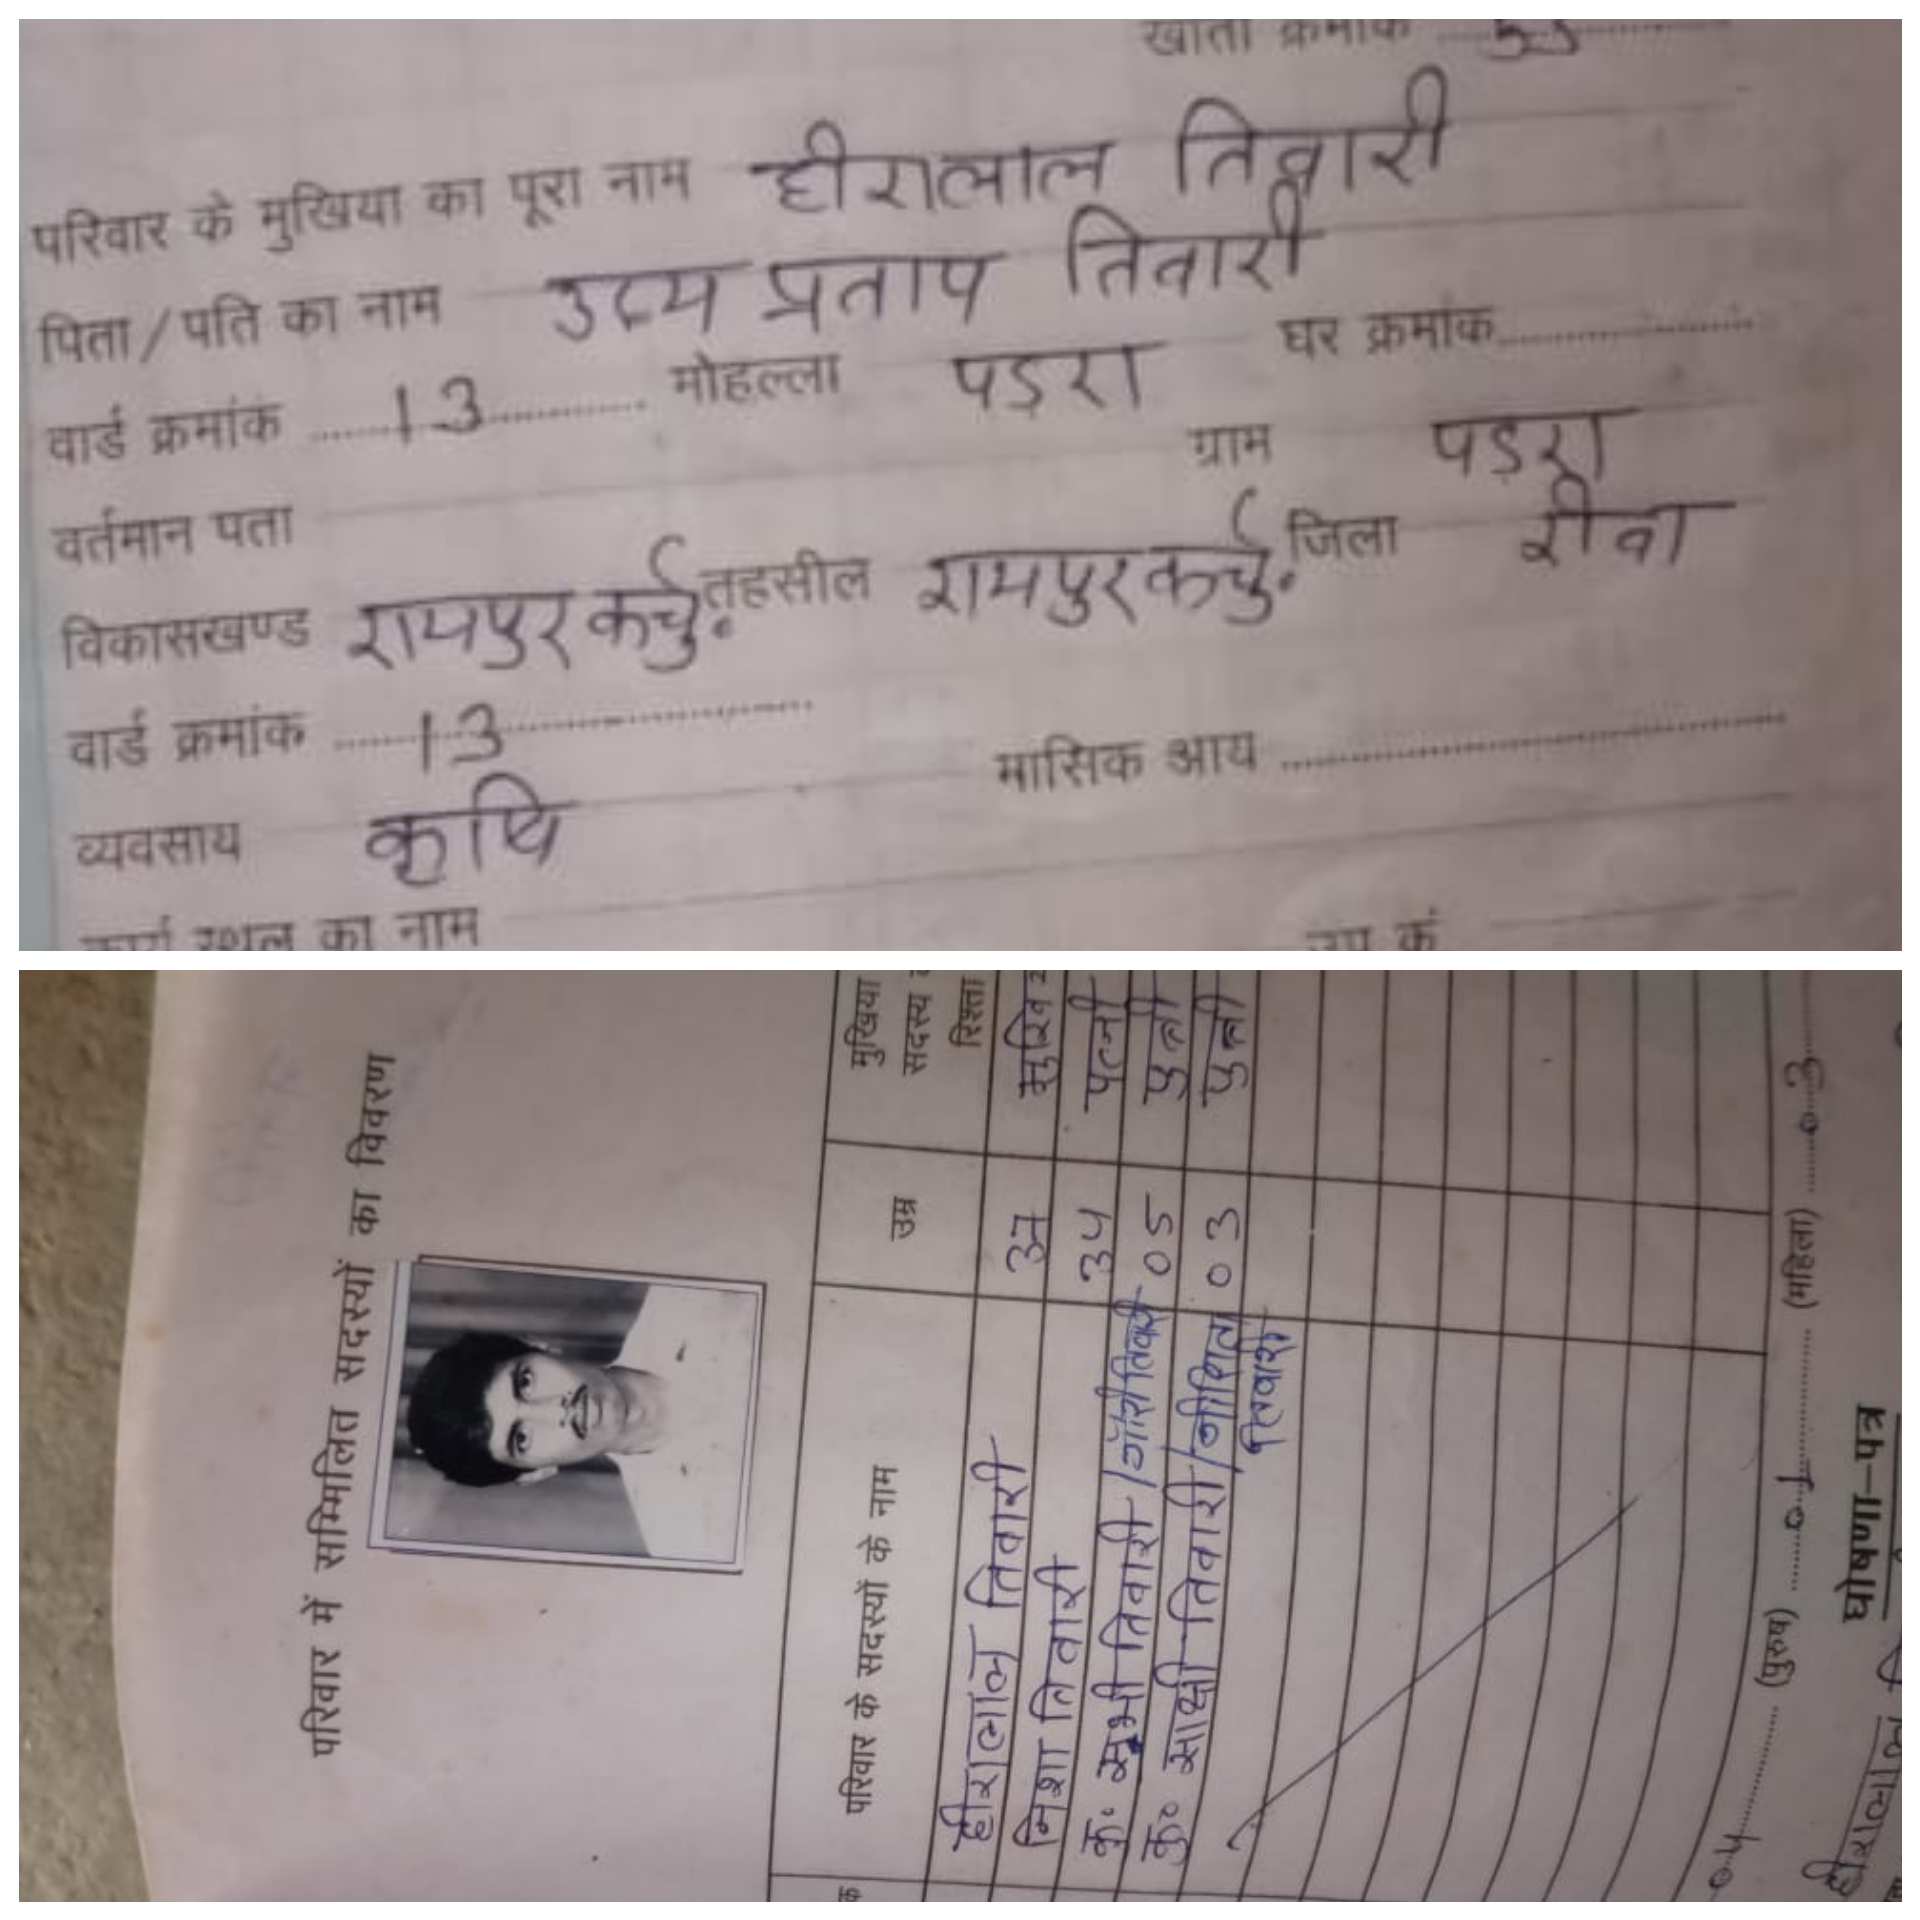 खाता क्रमांक
परिवार के मुखिया का पूरा नाम हीरालाल तिवारी
पिता/पति का नाम उदय प्रताप तिवारी
वार्ड क्रमांक 13 मोहल्ला पड़रा घर क्रमांक
वर्तमान पता ग्राम पड़रा
विकासखण्ड रामपुर कर्चु. तहसील रामपुर कर्चु. जिला रीवा
वार्ड क्रमांक 13
व्यवसाय कृषि मासिक आय
कार्य स्थल का नाम
परिवार में सम्मिलित सदस्यों का विवरण
परिवार के सदस्यों के नाम उम्र मुखिया सदस्य रिश्ता
हीरालाल तिवारी
निशा तिवारी पत्नी
कु. सुभी तिवारी / गौरी तिवारी 05 पुत्री
कु. साक्षी तिवारी / नीशिता तिवारी 03 पुत्री
(पुरुष) 01 (महिला) 03
घोषणा-पत्र
हीरालाल